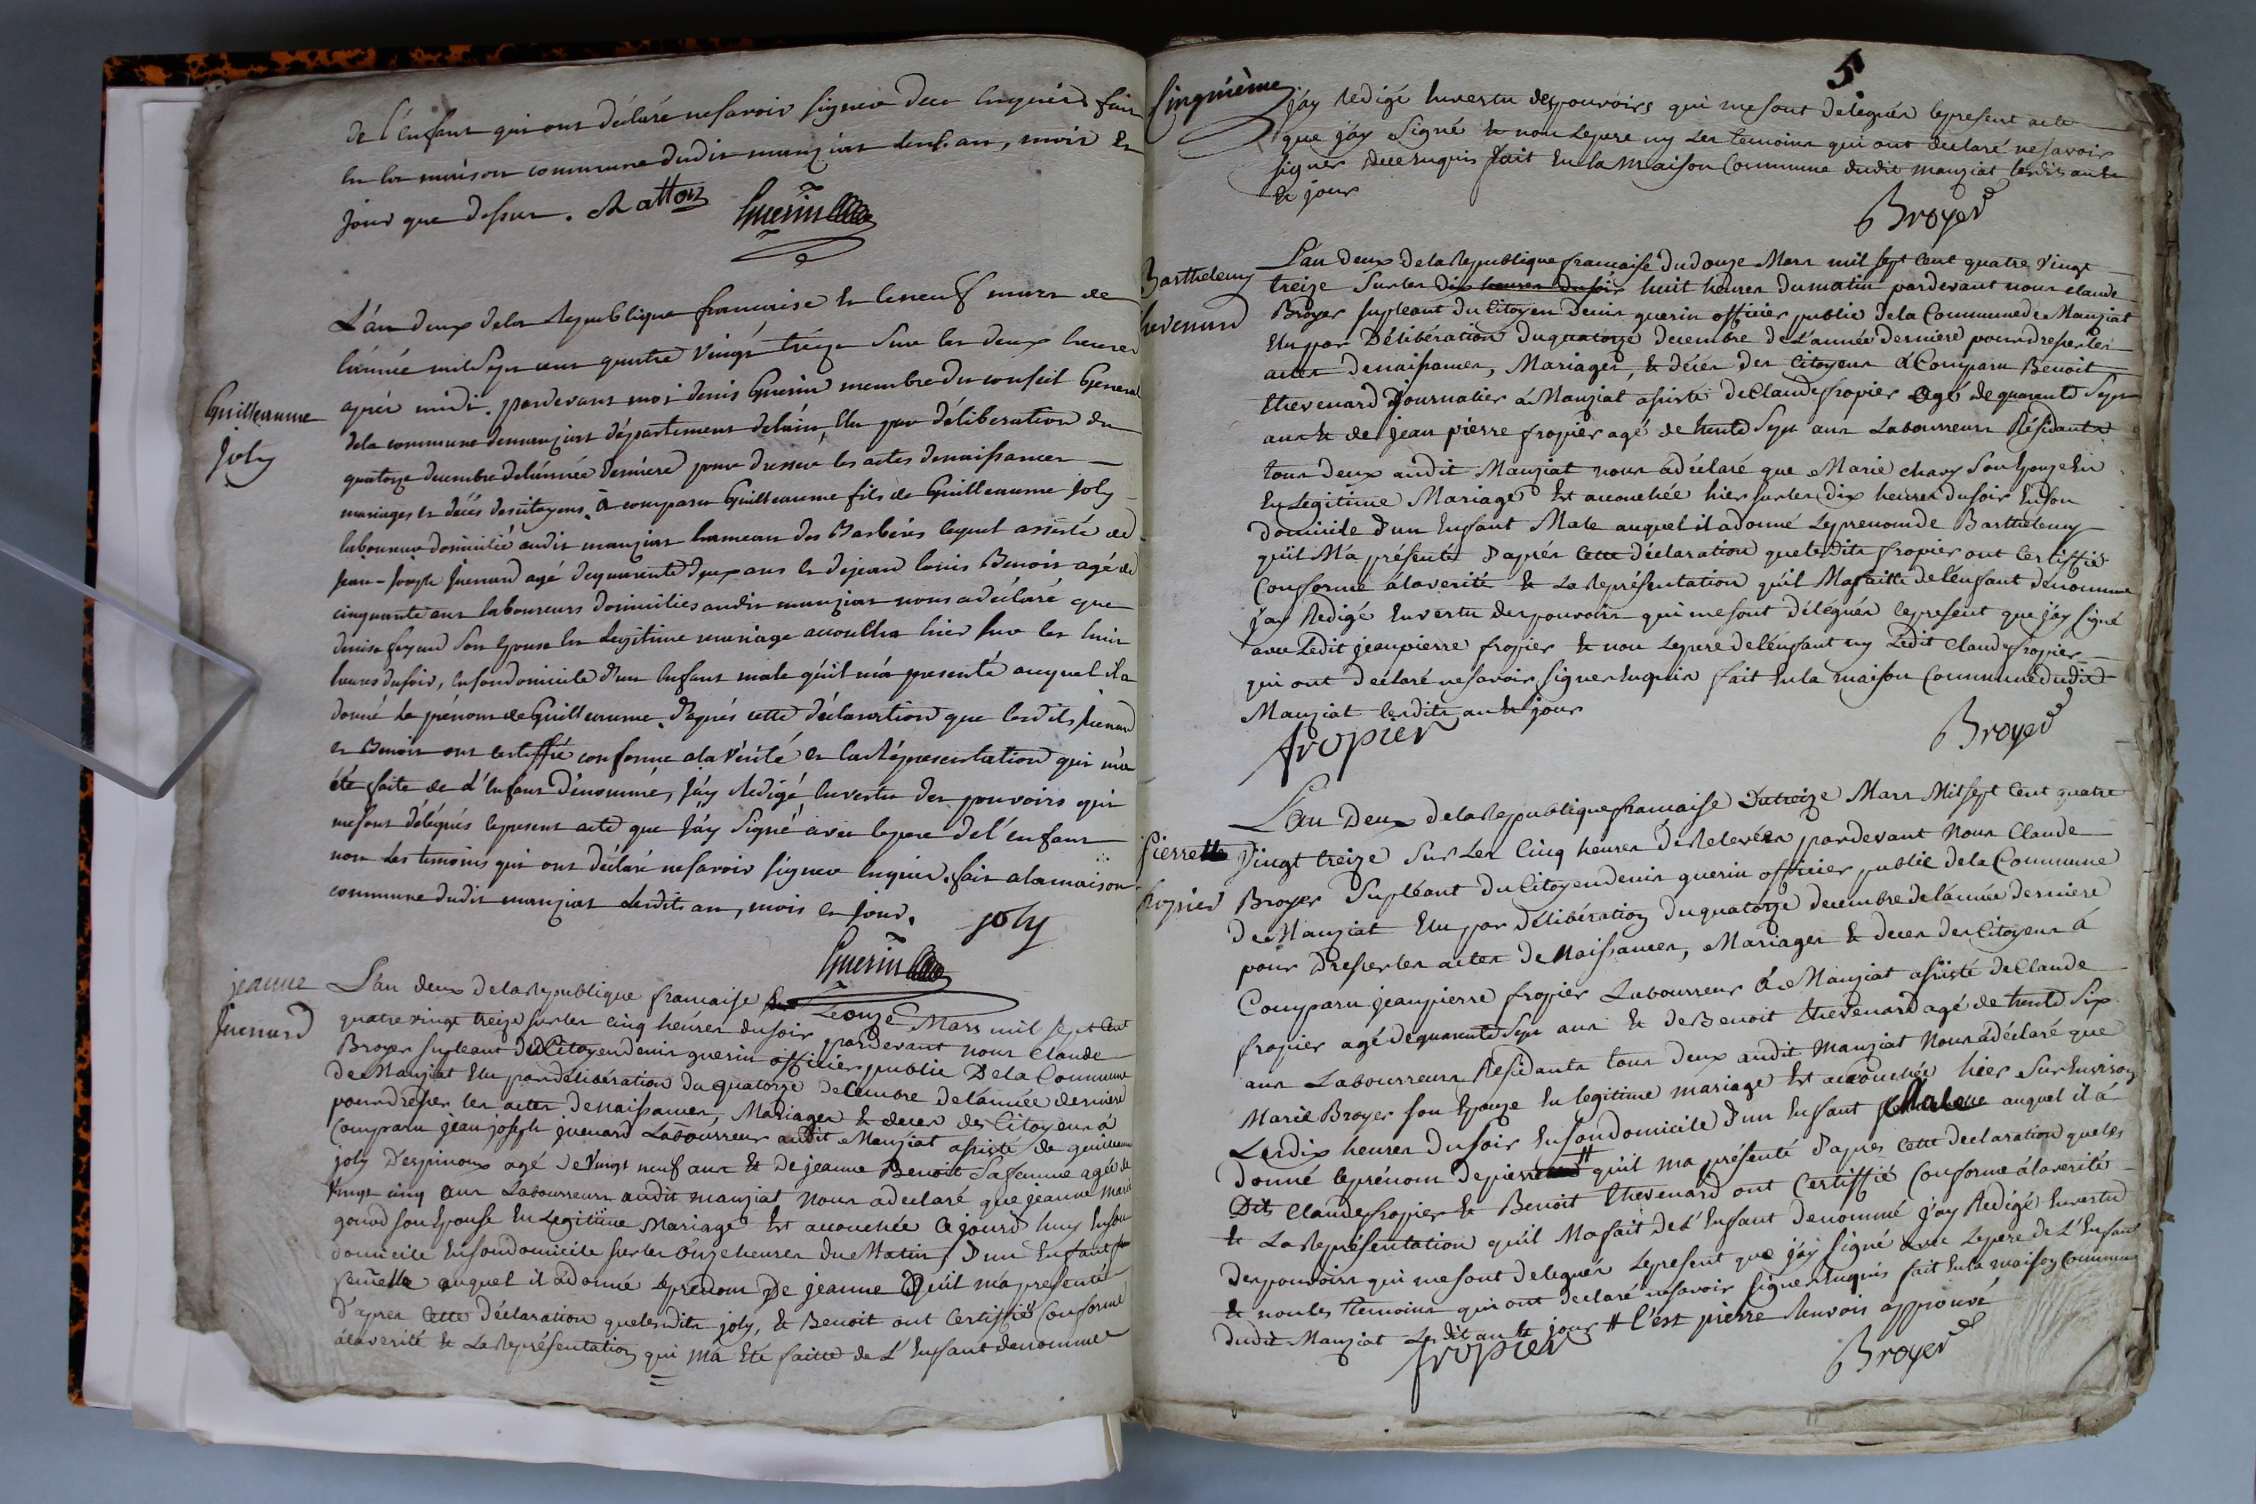 de l'enfant qui ont déclaré ne savoir signer de ce enquis fait
en la maison commune dudit manziat lesd. an, mois et
jour que dessus. Ratton Guerin
Guilleaume
Joly
L'an deux de la republique francaise et le neuf mars de
l'année mil sept cent quatre vingt treize sur les deux heures
après midi. pardevant moi denis Guerin membre du conseil General
de la commune de manziat département de lain, élu par déliberation du
quatorze decembre de l'année derniere pour dresser les actes de naissances
mariages et décès des citoyens, a comparu Guilleaume fils de Guilleaume Joly
laboureur domicilié audit manziat hameau des Barbéres lequel assisté de
Jean-Joseph Guenard agé de quarante deux ans et de jean louis Benoit agé de
cinquante ans laboureurs domiciliés audit manziat nous a déclaré que
denise son Epouse en legitime mariage accoucha hier sur les huit
heures du soir, en son domicile d'un enfant male qu'il m'a presenté auquel il a
donné le prénom de Guilleaume, d'après cette déclaration que lesdits Guenard
et Benoit ont certiffié conforme a la vérité et la Répresentation qui m'a
été faite de L'enfant dénommé, J'áy Redigé en vertu des pouvoirs qui
me sont délégués le present acte que J'áy Signé avec le pere de l'enfant
non Les temoins qui ont déclaré ne savoir signer enquis. fait a la maison
commune dudit manziat lesdits an, mois et jour. joly
Guerin
jeanne
Guenard
L'an deux de la Republique francaise Le onze Mars mil sept Cent
quatre vingt treize sur les cinq heures du soir pardevant nous Claude
Broyer supleant du Citoyen denis guerin officier public De la Commune
de Manziat Elu par deliberation du quatorze decembre de l'année derniere
pour dresser les actes de naissances, Mariages & deces des Citoyens á
Comparu jean joseph guenard Laboureur audit Manziat assisté de guilleaume
joly D'espinoux agé de vingt neuf ans & de jeanne Benoit Sa femme agée de
vingt cinq ans Laboureurs audit manziat nous a declaré que jeanne marie
gonod son Epouse En Legitime Mariage Est accouchée Ce jourd'huy En son
domicile En son domicile sur les onze heures du Matin, D'un Enfant
femelle auquel il a donné Le prénom De jeanne Qu'il m'a presenté
D'apres Cette Déclaration que lesdits joly, & Benoit ont Certiffié Conforme
á la verité & La Représentation qui m'a Eté faitte de L'Enfant denommé
5
Cinquième
j'áy Redigé En vertu des pouvoirs qui me sont delegués le present acte
que j'áy Signé & non Le pere ny Les temoins qui ont declaré ne savoir
signer de ce enquis fait En la Maison Commune dudit manziat lesdits an &
& jour
Broyer
Barthelemy
thevenard
L'an deux de la Republique francaise du douze Mars mil sept Cent quatre vingt
treize Sur les dix heures du soir huit heures du matin pardevant nous claude
Broyer supleant du Citoyen denis guerin officier public de la Commune de Manziat
Elu par Délibération du quatorze decembre de L'année derniere pour dresser les
actes de naissances, Mariages, & décés des Citoyens á Comparu Benoit
thevenard Journalier á Manziat assisté de Claude fropier agé de quarante Sept
ans & de jean pierre fropier agé de trente Sept ans Laboureurs Résidants
tous deux audit Manziat nous a déclaré que Marie chary Son Epouze En
En Legitime Mariage Est accouchée hier sur les dix heures du soir En son
domicile d'un Enfant Male auquel il a donné Le prenom de Barthelemy
qu'il M'a présenté D'aprés Cette déclaration que lesdits fropier ont Certiffié
Conforme á la verité & La Représentation qu'il M'a faitte de l'enfant denommé
j'ay Redigé En vertu des pouvoirs qui me sont délégués le present que j'áy signé
avec Ledit jean pierre fropier & non Le pere de l'enfant ny Ledit Claude fropier
qui ont declaré ne savoir signer Enquis fait En la maison Commune dudit
Manziat lesdits an & jour
fropier Broyer
Pierrette
fropier
L'an Deux de la Republique francaise du treize Mars Mil sept Cent quatre
Vingt treize Sur Les Cinq heures De Relevée pardevant Nous Claude
Broyer Supléant du Citoyen denis guerin officier public de la Commune
De Manziat Elu par délibération du quatorze decembre de l'année derniere
pour dresser les actes de Naissances, Mariages & deces des Citoyens á
Comparu jean pierre fropier Laboureur á Manziat assisté de Claude
fropier agé de quarante Sept ans & de Benoit thevenard agé de trente Six
ans Laboureurs Residants tous deux audit Manziat Nous a déclaré que
Marie Broyer son Epouze En legitime mariage Est accouchée hier Sur Environ
Les dix heures du soir En son domicile D'un Enfant Male auquel il á
donné le prénom de pierre # qu'il m'a présenté D'apres Cette declaration que les
Dits Claude fropier & Benoit thevenard ont Certiffié Conforme á la verité
& La Représentation qu'il M'a fait de L'Enfant denommé j'ay Redigé En vertu
des pouvoirs qui me sont delegués Le present que j'áy signé avec Le pere de L'Enfant
& non les temoins qui ont declaré ne savoir signer Enquis fait En la maison Commune
dudit Manziat Lesdit an & jour # C'est pierre Renvois approuvé
fropier Broyer